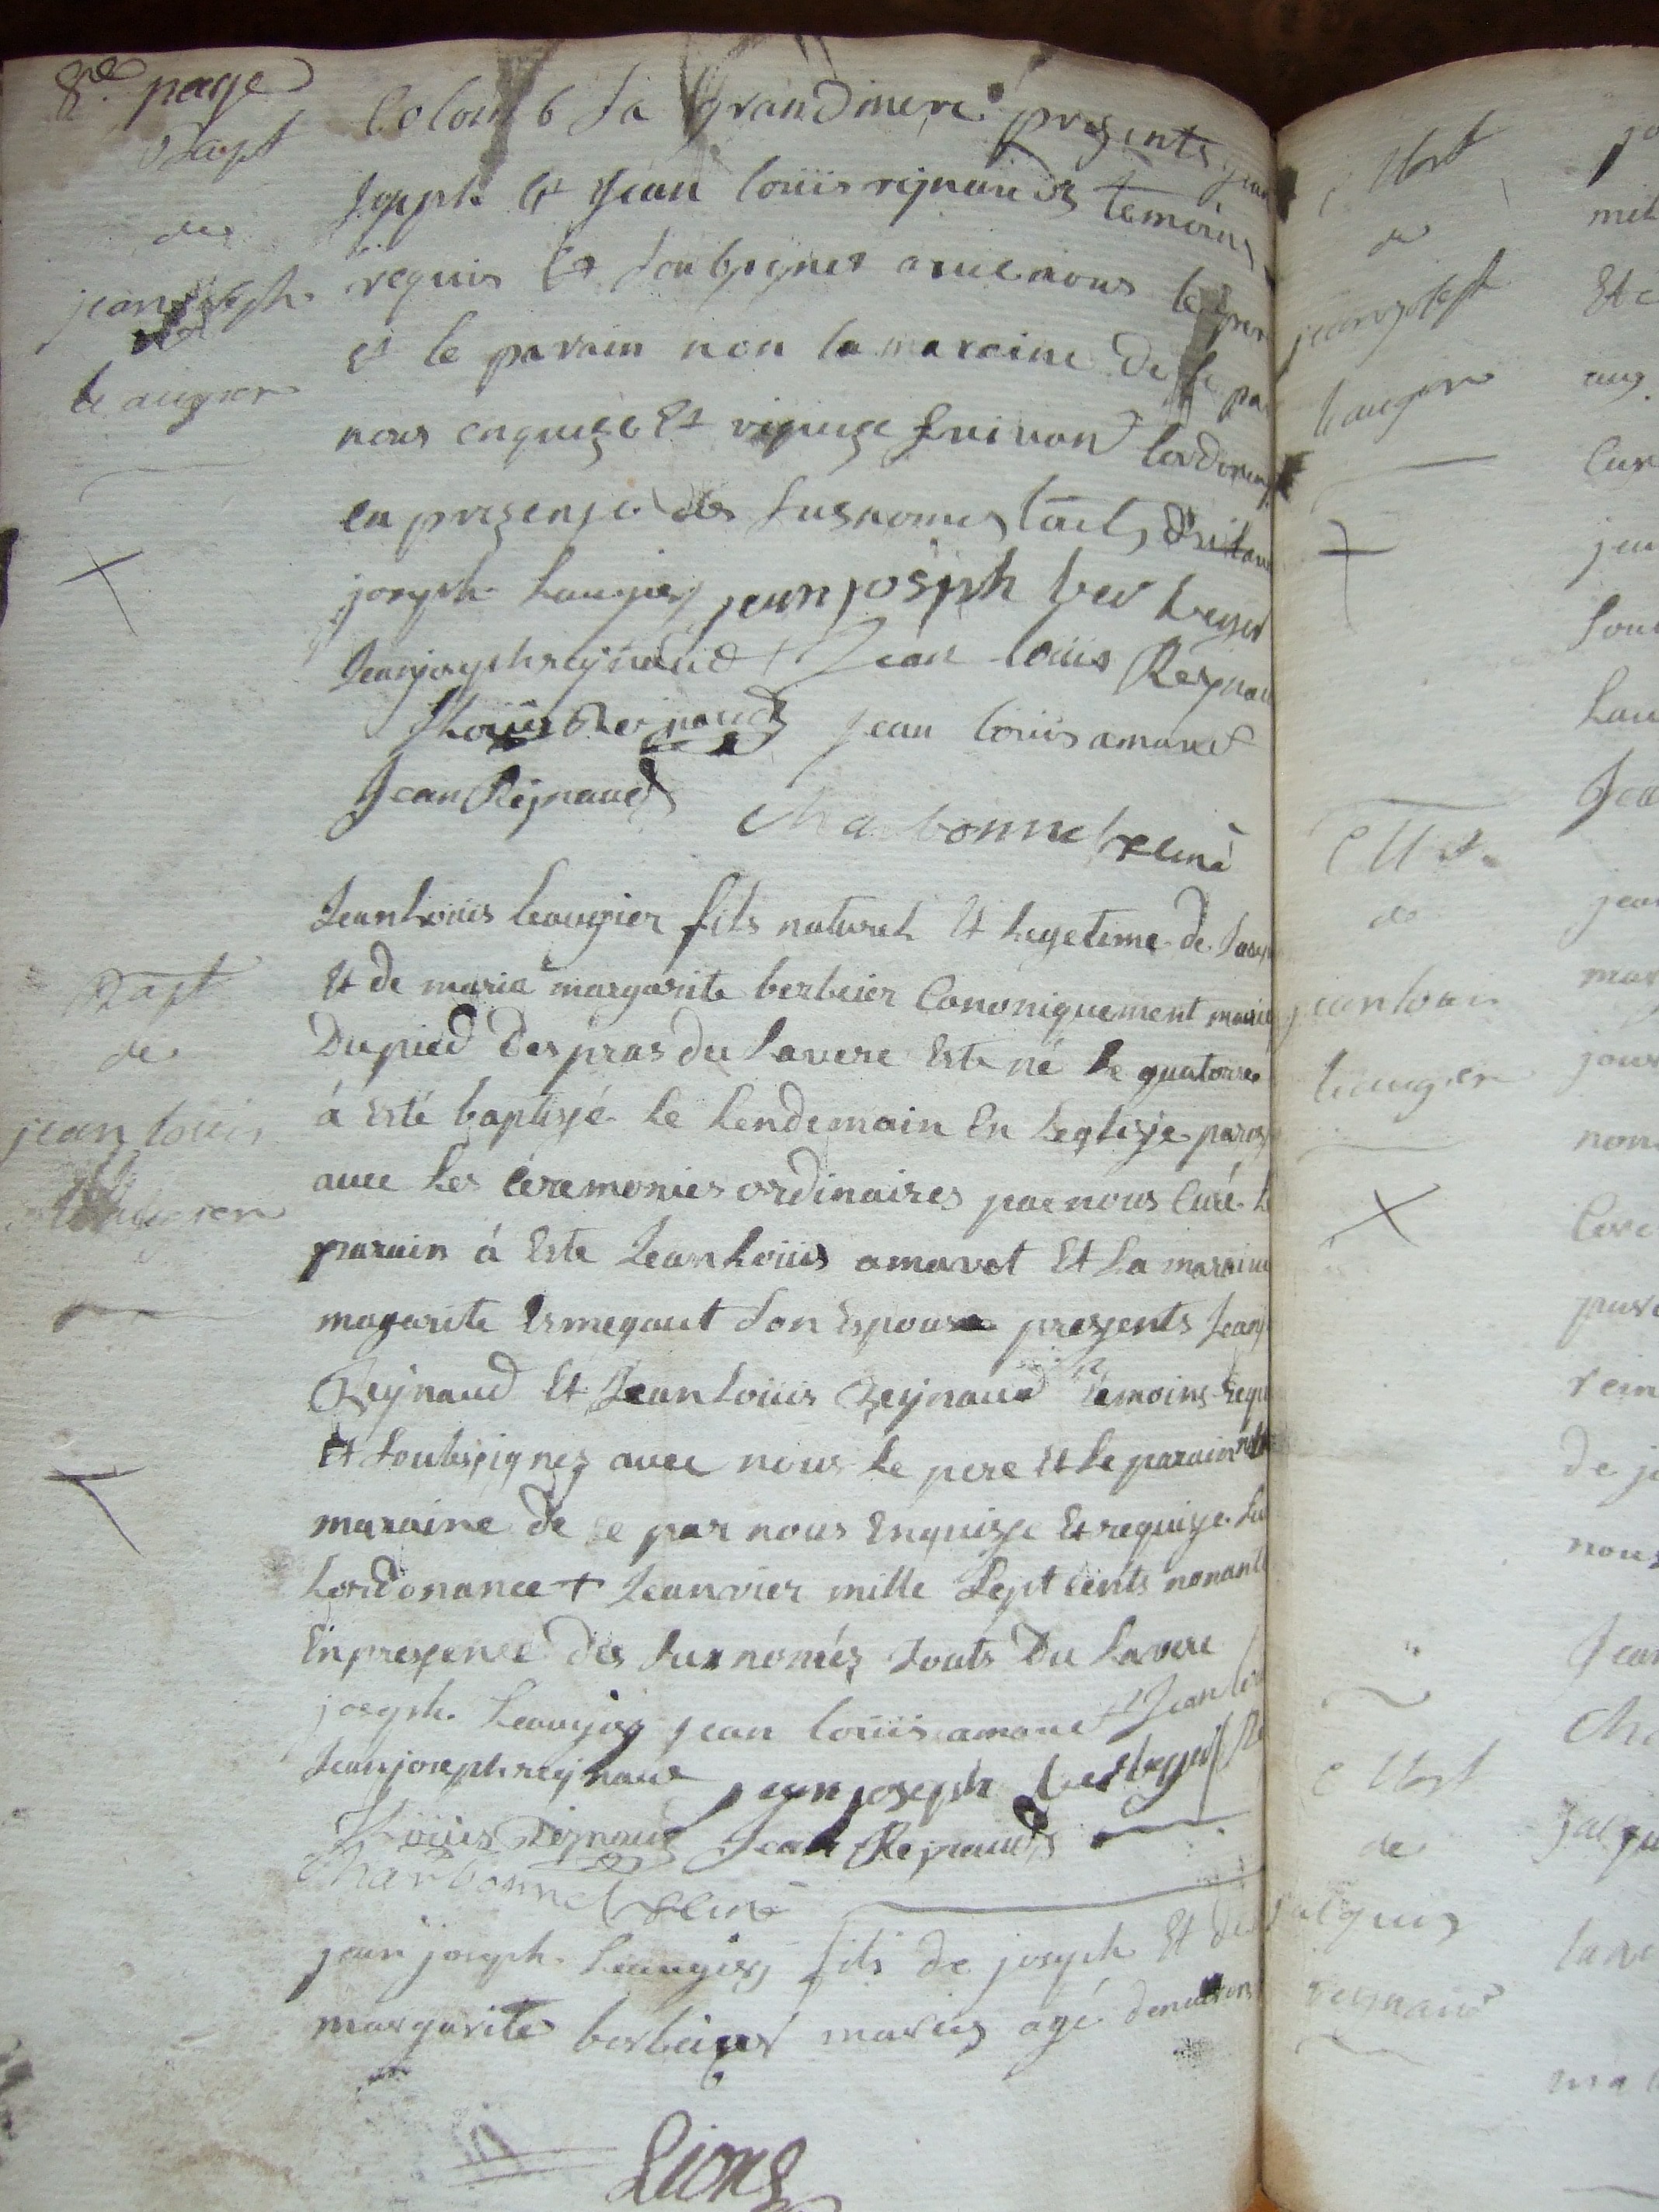 8.e page
Bapt
de
jean joseph
leaugier
Colomb sa grandmere presents jean
joseph Et Jean loüis reynauds temoins
requis Et soubsignes avec nous le pere
et le parain non la maraine de ce par
nous enquize Et requize suivant lordonan
en presence des susnomes touts du lave
joseph Laugier jean joseph ber beyer
Jean joseph reynaud Jean loüis Reynau
Loüis Reynaud jean loüis amavet
Jean Reynaud
Charbonnel curé
Bapt
de
jean loüis
leaugier
Jean Loüis leaugier fils naturel Et Legeteme de Josep
Et de marie margarite berbeier Canoniquement marié
Du pied des pras du Lavere Este né Le quatorze
à Esté baptisjé Le Lendemain En Leglisje paros
avec Les Ceremonies ordinaires par nous Curé Le
parain à Este Jean Loüis amavet Et La maraine
magarite Ermegaut Son Espouse presjents Jean j
Reynaud Et Jean Loüis Reynaud temoins requ
Et Soubsjignez avec nous Le pere Et Le parain non la
maraine de ce par nous Enquisje Et requisje Su
Lordonance + Jeanvier mille Sept cents nonante
En presjence des Susnomés touts Du Lavere
joseph Leaugier jean loüis amavet Jean lou
Jean joseph reynaud jean joseph berbeyer Re
Loüis Reynaud Jean Reynaud
Charbonnel curé
jean joseph Leaugier fils de joseph Et de
margarite berbeyer maries agé denviron
Lions
Mort
de
jean joseph
leaugier
Mort
de
jean louis
leaugier
Mort
de
jacques
reynaud
mil
Et c
aug
Cur
jea
Sou
Lau
Jea
jea
mar
jour
non
Cere
para
rein
de jo
nous
Jean
Cha
jacqu
lave
ma